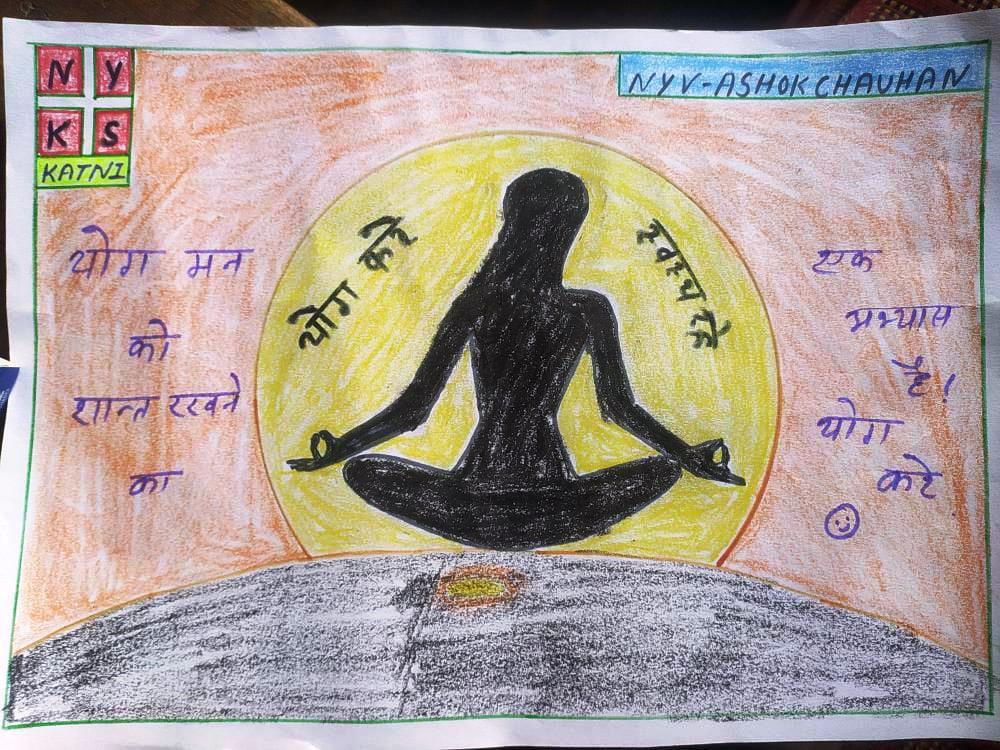 N Y
K S
KATNI
NYV-ASHOK CHAUHAN
योग मन
को
शान्त रखने
का
योग करे
रहे
एक
अभ्यास
है!
योग
करे